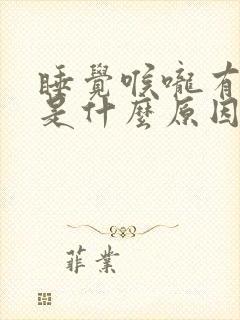 睡覺喉嚨有
是什麼原因
菲業